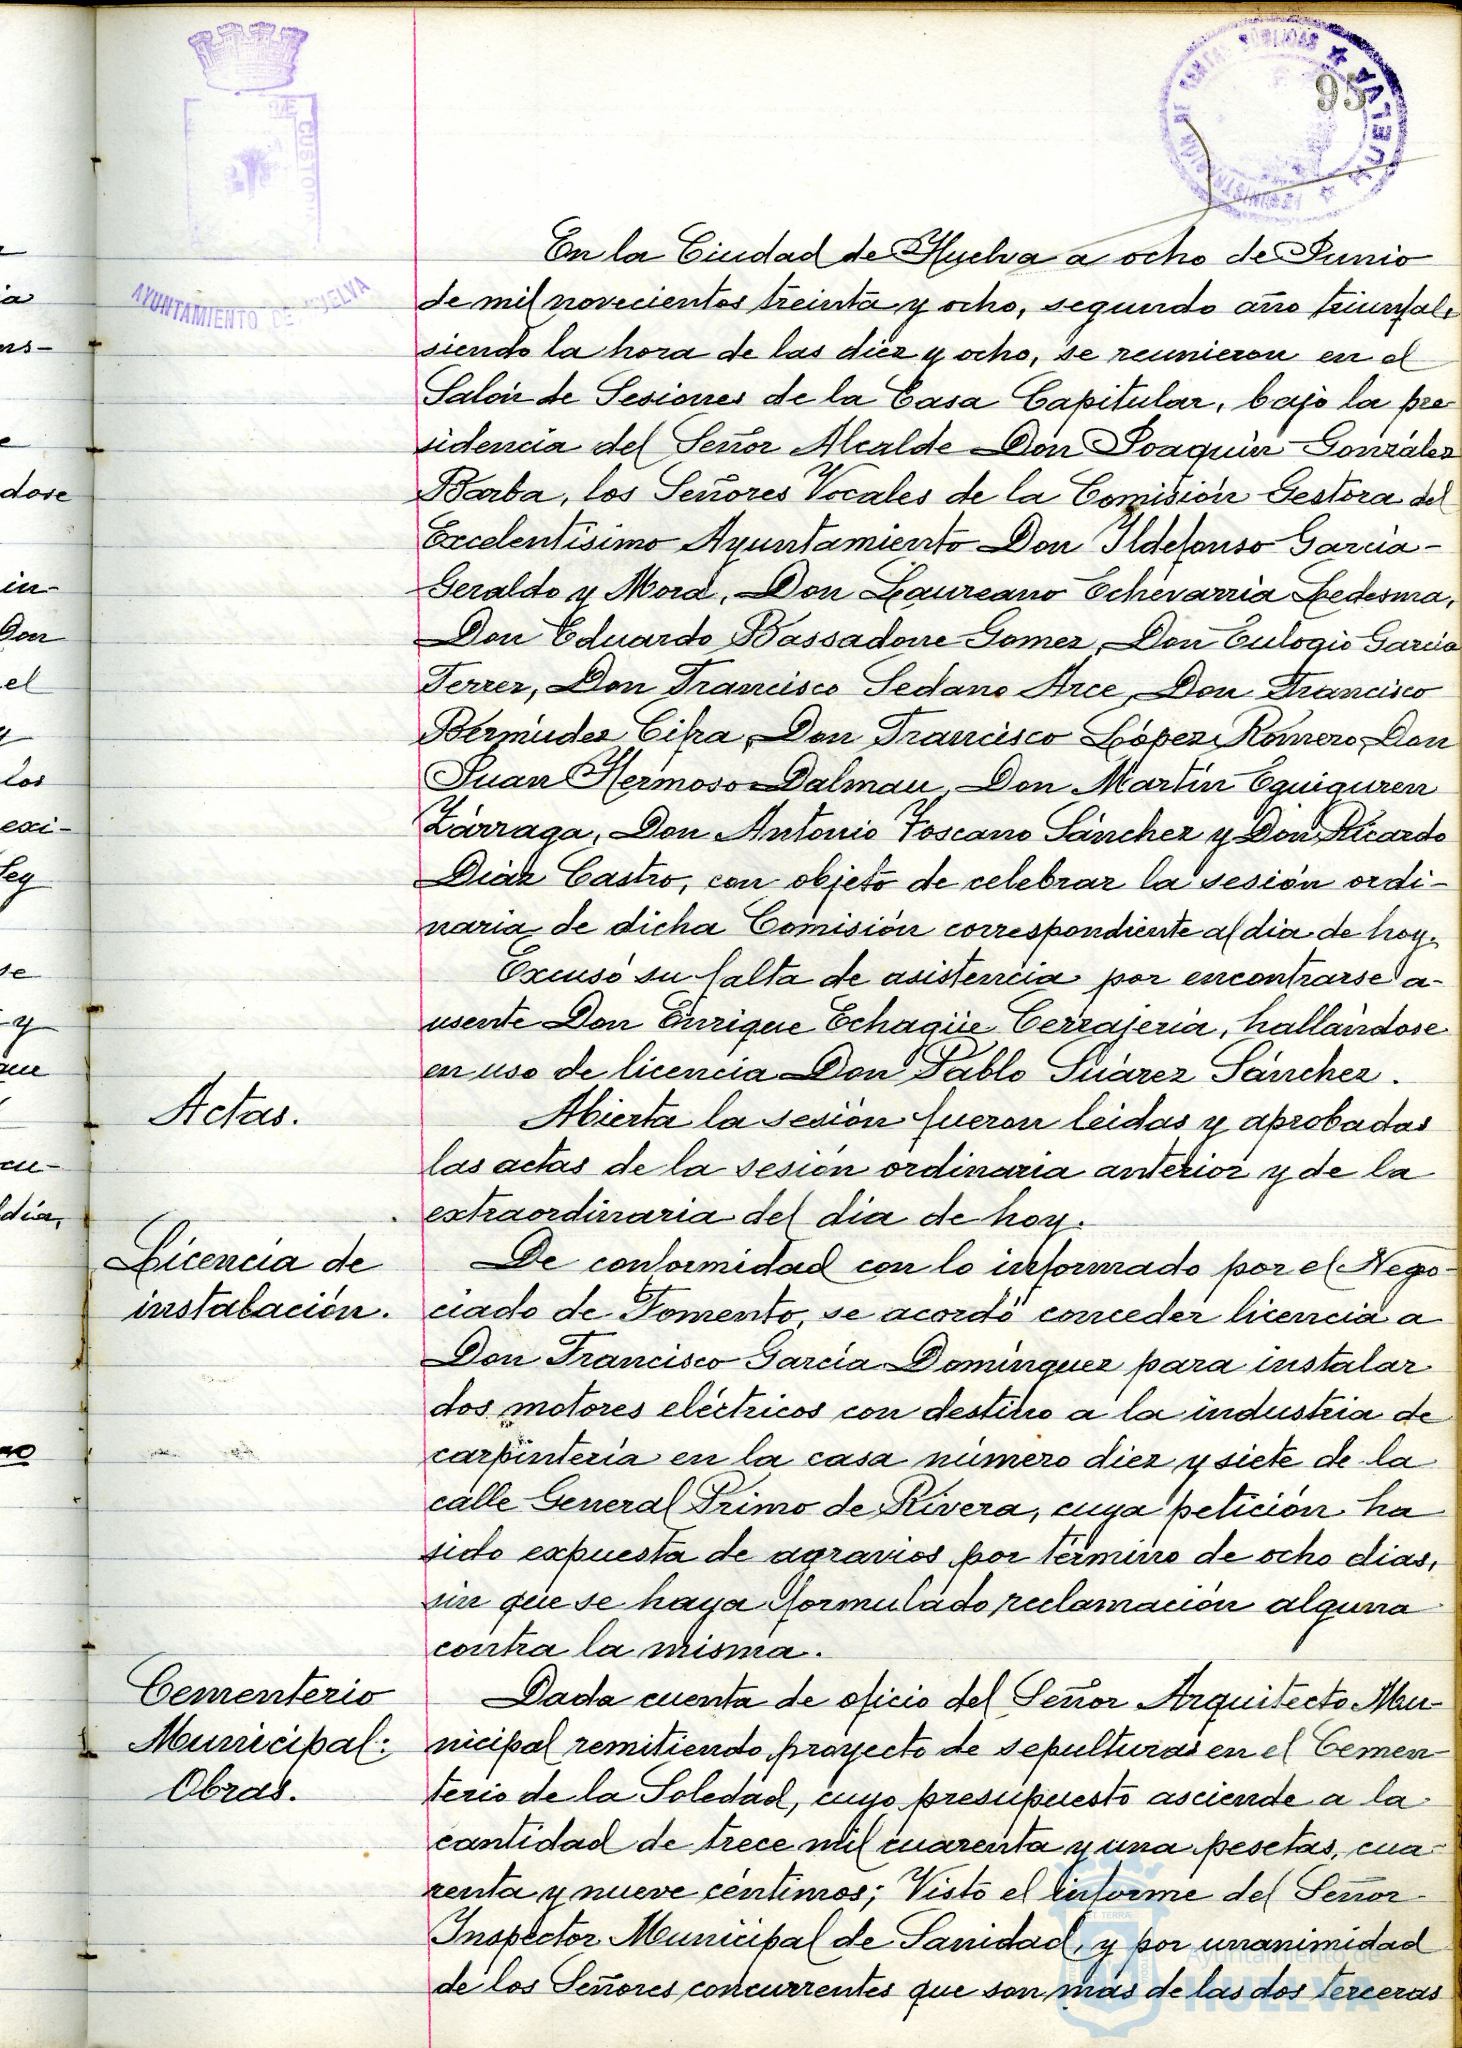 95
AYUNTAMIENTO DE HUELVA
HUELVA
En la Ciudad de Huelva a ocho de Junio
de mil novecientos treinta y ocho, segundo año triunfal,
siendo la hora de las diez y ocho, se reunieron en el
Salón de Sesiones de la Casa Capitular, bajo la pre-
sidencia del Señor Alcalde Don Joaquín González
Barba, los Señores Vocales de la Comisión Gestora del
Excelentísimo Ayuntamiento Don Ildefonso García-
Geraldo y Mora, Don Laureano Echevarria Ledesma,
Don Eduardo Bassadone Gomez, Don Eulogio García
Ferrer, Don Francisco Sedano Arce, Don Francisco
Bermúdez Cifra, Don Francisco López Romero, Don
Juan Hermoso Dalmau, Don Martín Eguiguren
Zárraga, Don Antonio Toscano Sánchez y Don Ricardo
Díaz Castro, con objeto de celebrar la sesión ordi-
naria de dicha Comisión correspondiente al dia de hoy.
Excusó su falta de asistencia por encontrarse a-
usente Don Enrique Echagüe Cerrajería, hallándose
en uso de licencia Don Pablo Suárez Sánchez.
Actas.
Abierta la sesión fueron leidas y aprobadas
las actas de la sesión ordinaria anterior y de la
extraordinaria del dia de hoy.
Licencia de
instalación.
De conformidad con lo informado por el Nego-
ciado de Fomento, se acordó conceder licencia a
Don Francisco García Domínguez para instalar
dos motores eléctricos con destino a la industria de
carpintería en la casa número diez y siete de la
calle General Primo de Rivera, cuya petición ha
sido expuesta de agravios por término de ocho dias,
sin que se haya formulado reclamación alguna
contra la misma.
Cementerio
Municipal:
Obras.
Dada cuenta de oficio del Señor Arquitecto Mu-
nicipal remitiendo proyecto de sepulturas en el Cemen-
terio de la Soledad, cuyo presupuesto asciende a la
cantidad de trece mil cuarenta y una pesetas, cua-
renta y nueve céntimos; Visto el informe del Señor
Inspector Municipal de Sanidad, y por unanimidad
de los Señores concurrentes que son más de las dos terceras
Ayuntamiento de
HUELVA